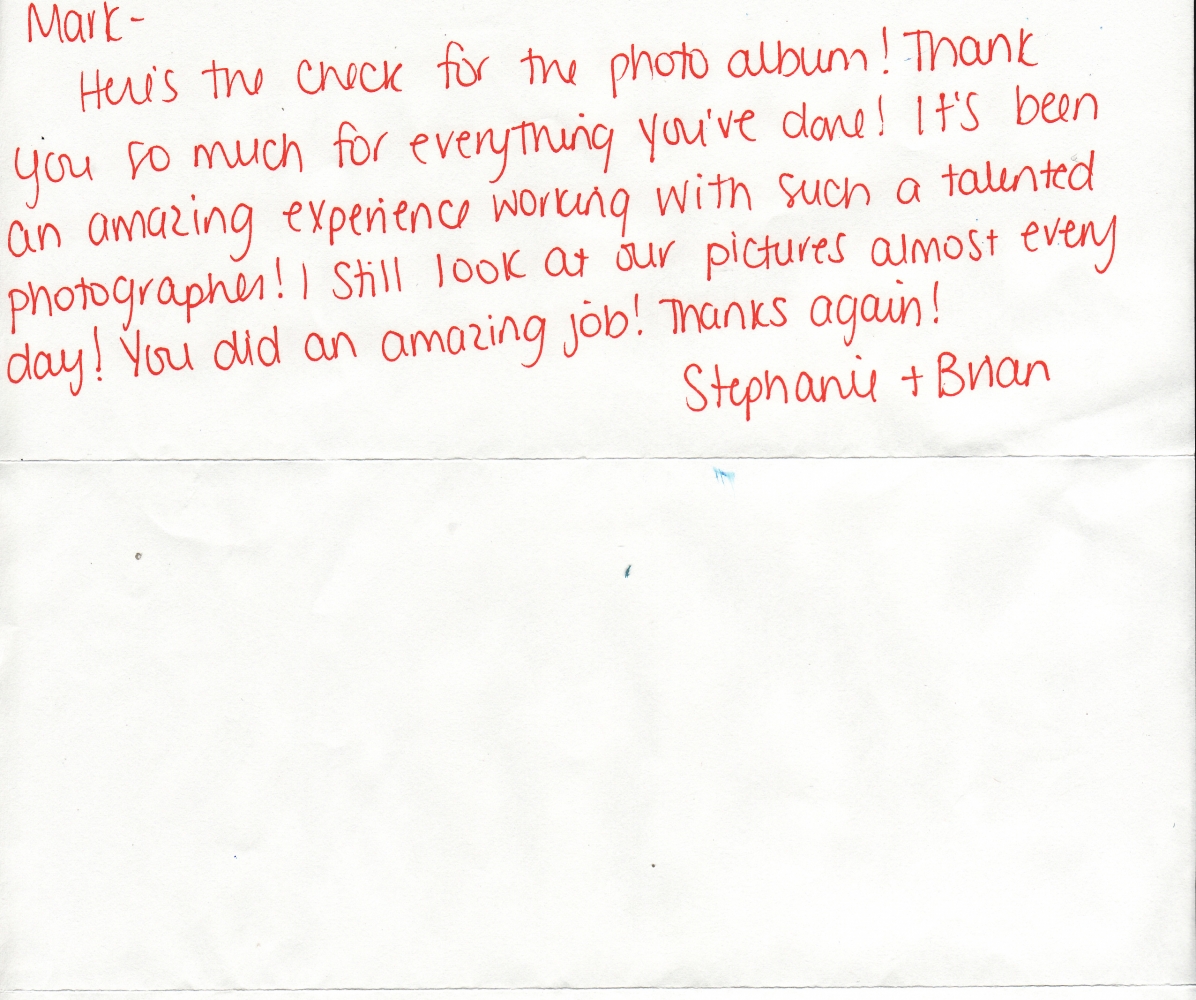 Mark-
Here's the check for the photo album! Thank
you so much for everything you've done! It's been
an amazing experience working with such a talented
photographer! I still look at our pictures almost every
day! You did an amazing job! Thanks again!
Stephanie + Brian